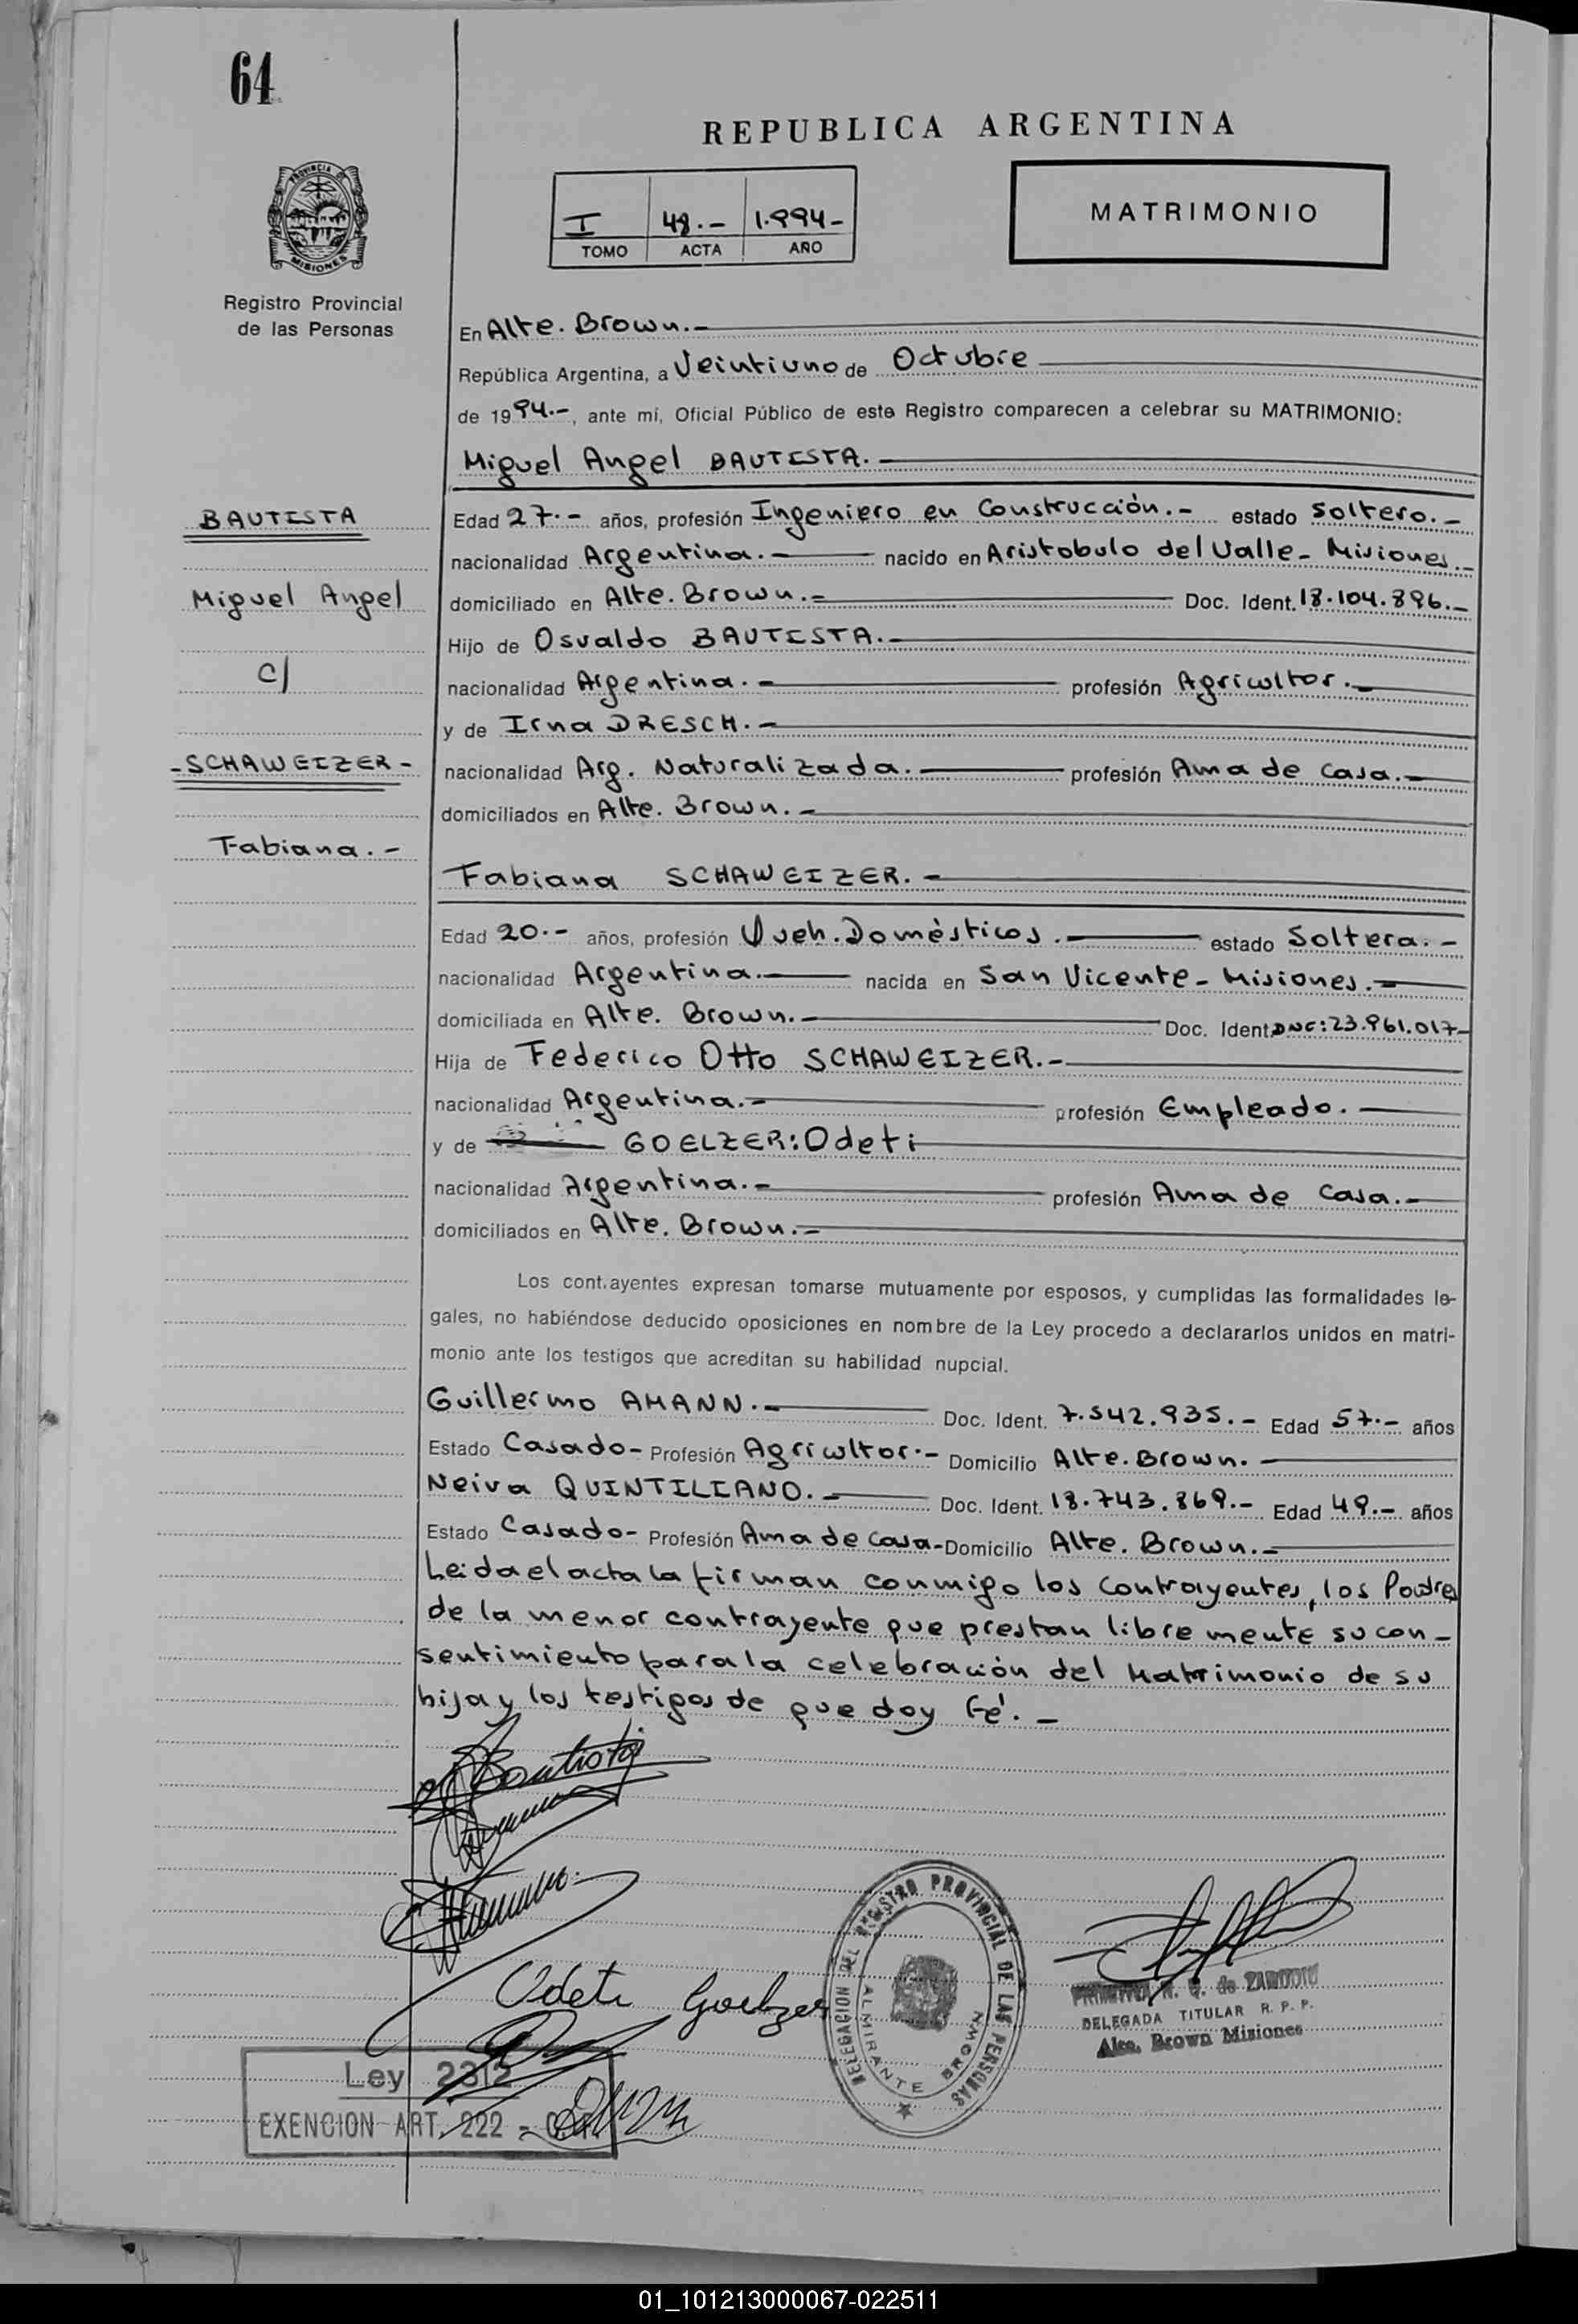 64
REPUBLICA ARGENTINA
PROVINCIA DE
MISIONES
I 48.- 1.994-
TOMO ACTA AÑO
MATRIMONIO
Registro Provincial
de las Personas
En Alte. Brown.-
República Argentina, a Veintiuno de Octubre
de 1994.-, ante mí, Oficial Público de este Registro comparecen a celebrar su MATRIMONIO:
Miguel Angel BAUTISTA.-
BAUTISTA
Miguel Angel
c/
-SCHAWEIZER-
Fabiana.-
Edad 27.- años, profesión Ingeniero en Construcción.- estado Soltero.-
nacionalidad Argentina.- nacido en Aristobulo del Valle- Misiones.-
domiciliado en Alte. Brown.- Doc. Ident. 18.104.896.-
Hijo de Osvaldo BAUTISTA.-
nacionalidad Argentina.- profesión Agricultor.-
y de Irna DRESCH.-
nacionalidad Arg. Naturalizada.- profesión Ama de Casa.-
domiciliados en Alte. Brown.-
Fabiana SCHAWEIZER.-
Edad 20.- años, profesión Queh. Domésticos.- estado Soltera.-
nacionalidad Argentina.- nacida en San Vicente- Misiones.-
domiciliada en Alte. Brown.- Doc. Ident. 23.961.017-
Hija de Federico Otto SCHAWEIZER.-
nacionalidad Argentina.- profesión Empleado.-
y de GOELZER: Odeti
nacionalidad Argentina.- profesión Ama de Casa.-
domiciliados en Alte. Brown.-
Los contrayentes expresan tomarse mutuamente por esposos, y cumplidas las formalidades le-
gales, no habiéndose deducido oposiciones en nombre de la Ley procedo a declararlos unidos en matri-
monio ante los testigos que acreditan su habilidad nupcial.
Guillermo AMANN.- Doc. Ident. 7.542.935.- Edad 57.- años
Estado Casado- Profesión Agricultor.- Domicilio Alte. Brown.-
Neiva QUINTILIANO.- Doc. Ident. 18.743.869.- Edad 49.- años
Estado Casado- Profesión Ama de Casa- Domicilio Alte. Brown.-
Leida el acta la firman conmigo los Contrayentes, los Padres
de la menor contrayente que prestan libre mente su con-
sentimiento para la celebración del Matrimonio de su
hija y los testigos de que doy Fé.-
Bautista
Odeti Goelzer
DELEGACION DEL REGISTRO PROVINCIAL DE LAS PERSONAS
ALMIRANTE BROWN
N. G. de
DELEGADA TITULAR R. P. P.
Alte. Brown Misiones
Ley 2312
EXENCION ART. 222 -
01_101213000067-022511